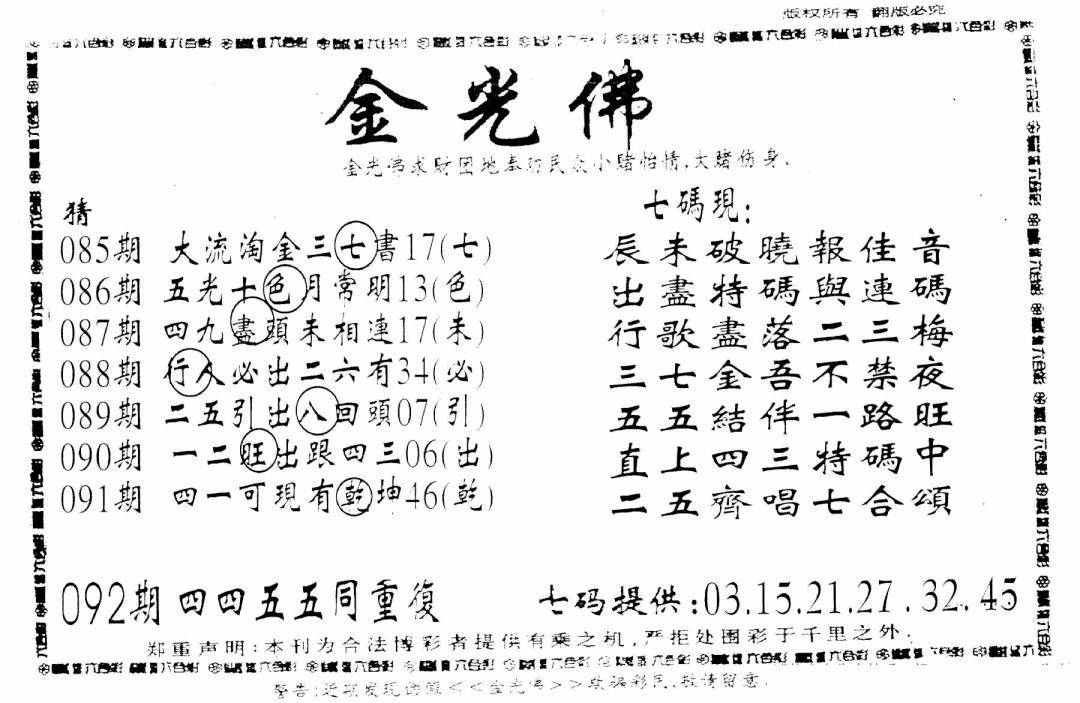 版权所有 翻版必究
金光佛
金光佛求财因地奉功民众小赌怡情,大赌伤身.
猜
085期 大流淘金三七書17(七)
086期 五光十色月常明13(色)
087期 四九盡頭未相連17(未)
088期 行人必出二六有34(必)
089期 二五引出八回頭07(引)
090期 一二旺出跟四三06(出)
091期 四一可現有乾坤46(乾)
七碼現:
辰未破曉報佳音
出盡特碼與連碼
行歌盡落二三梅
三七金吾不禁夜
五五結伴一路旺
直上四三特碼中
二五齊唱七合頌
092期 四四五五同重復
七码提供:03.15.21.27.32.45
郑重声明:本刊为合法博彩者提供有乘之机,严拒处围彩于千里之外.
警告:近期发现的假<<金光佛>>欺骗彩民,敬请留意.